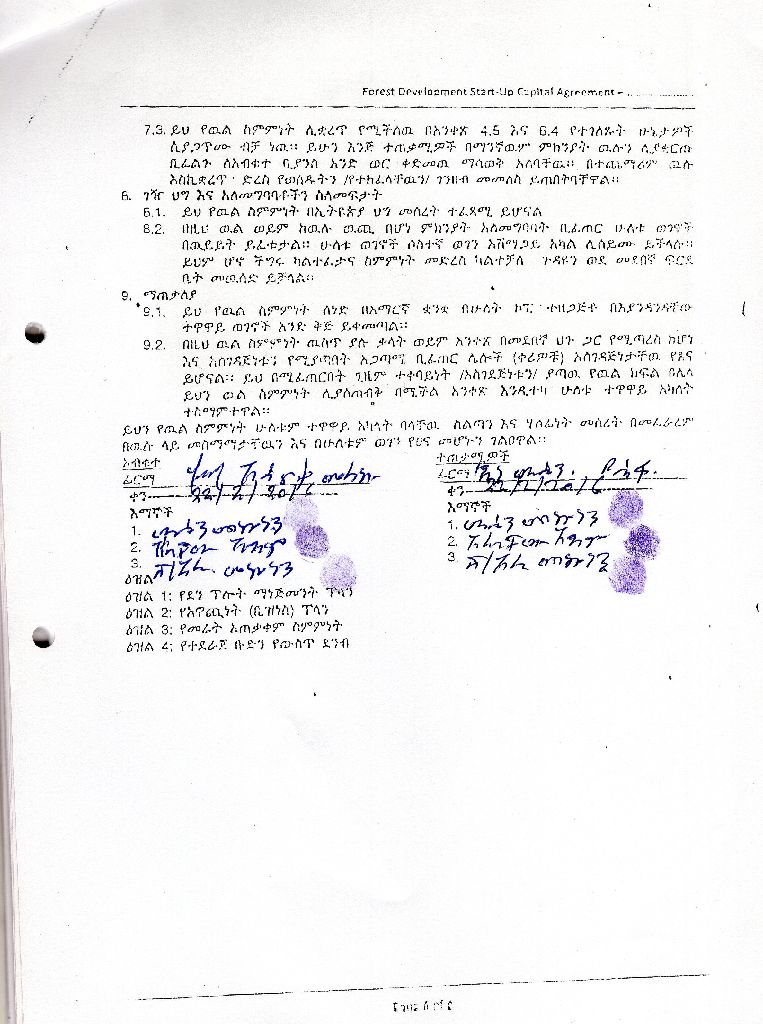 Forest Development Start-Up Capital Agreement –
7.3. ይህ የዉል ስምምነት ሊቋረጥ የሚችለዉ በአንቀጽ 4.5 እና 6.4 የተገለጹት ሁኔታዎች
ሲያጋጥሙ ብቻ ነዉ፡፡ ይሁን እንጅ ተጠቃሚዎች በማንኛዉም ምክንያት ዉሉን ሊያቋርጡ
ቢፈልጉ ለአብቁተ ቢያንስ አንድ ወር ቀድመዉ ማሳወቅ አለባቸዉ፡፡ በተጨማሪም ዉሉ
እስኪቋረጥ ድረስ የወሰዱትን /የተከፈላቸዉን/ ገንዘብ መመለስ ይጠበቅባቸዋል፡፡
8. ገዥ ህግ እና አለመግባባቶችን ስለመፍታት
8.1. ይህ የዉል ስምምነት በኢትዮጵያ ህግ መሰረት ተፈጻሚ ይሆናል
8.2. በዚህ ዉል ወይም ከዉሉ ዉጪ በሆነ ምክንያት አለመግባባት ቢፈጠር ሁለቱ ወገኖች
በዉይይት ይፈቱታል፡፡ ሁለቱ ወገኖች ሶስተኛ ወገን አሸማጋይ አካል ሊሰይሙ ይችላሉ፡፡
ይህም ሆኖ ችግሩ ካልተፈታና ስምምነት መድረስ ካልተቻለ ጉዳዩን ወደ መደበኛ ፍርድ
ቤት መዉሰድ ይቻላል፡፡
9. ማጠቃለያ
9.1. ይህ የዉል ስምምነት ሰነድ በአማርኛ ቋንቋ በሁለት ኮፒ ተዘጋጅቶ በእያንዳንዳቸዉ
ተዋዋይ ወገኖች አንድ ቅጅ ይቀመጣል፡፡
9.2. በዚህ ዉል ስምምነት ዉስጥ ያሉ ቃላት ወይም አንቀጽ በመደበኛ ህጉ ጋር የሚጣረስ ከሆነ
እና አስገዳጅነቱን የሚያጣበት አጋጣሚ ቢፈጠር ሌሎች (ቀሪዎቹ) አስገዳጅነታቸዉ የጸና
ይሆናል፡፡ ይህ በሚፈጠርበት ጊዜም ተቀባይነት /አስገዳጅነቱን/ ያጣዉ የዉል ክፍል በሌላ
ይህን ዉል ስምምነት ሊያስጠብቅ በሚችል አንቀጽ እንዲተካ ሁለቱ ተዋዋይ አካላት
ተስማምተዋል፡፡
ይህን የዉል ስምምነት ሁለቱም ተዋዋይ አካላት ባላቸዉ ስልጣን እና ሃላፊነት መሰረት በመፈራረም
በዉሉ ላይ መስማማታቸዉን እና በሁለቱም ወገን የጸና መሆኑን ገልፀዋል፡፡
አብቁተ
ፊርማ
ቀን 22/2/2016
እማኞች
1.
2.
3.
ተጠቃሚዎች
ፊርማ
ቀን 22/2/2016
እማኞች
1.
2.
3.
ዕዝል
ዕዝል 1: የደን ፕሎት ማኔጅመንት ፕላን
ዕዝል 2: የአዋጪነት (ቢዝነስ) ፕላን
ዕዝል 3: የመሬት አጠቃቀም ስምምነት
ዕዝል 4: የተደራጀ ቡድን የውስጥ ደንብ